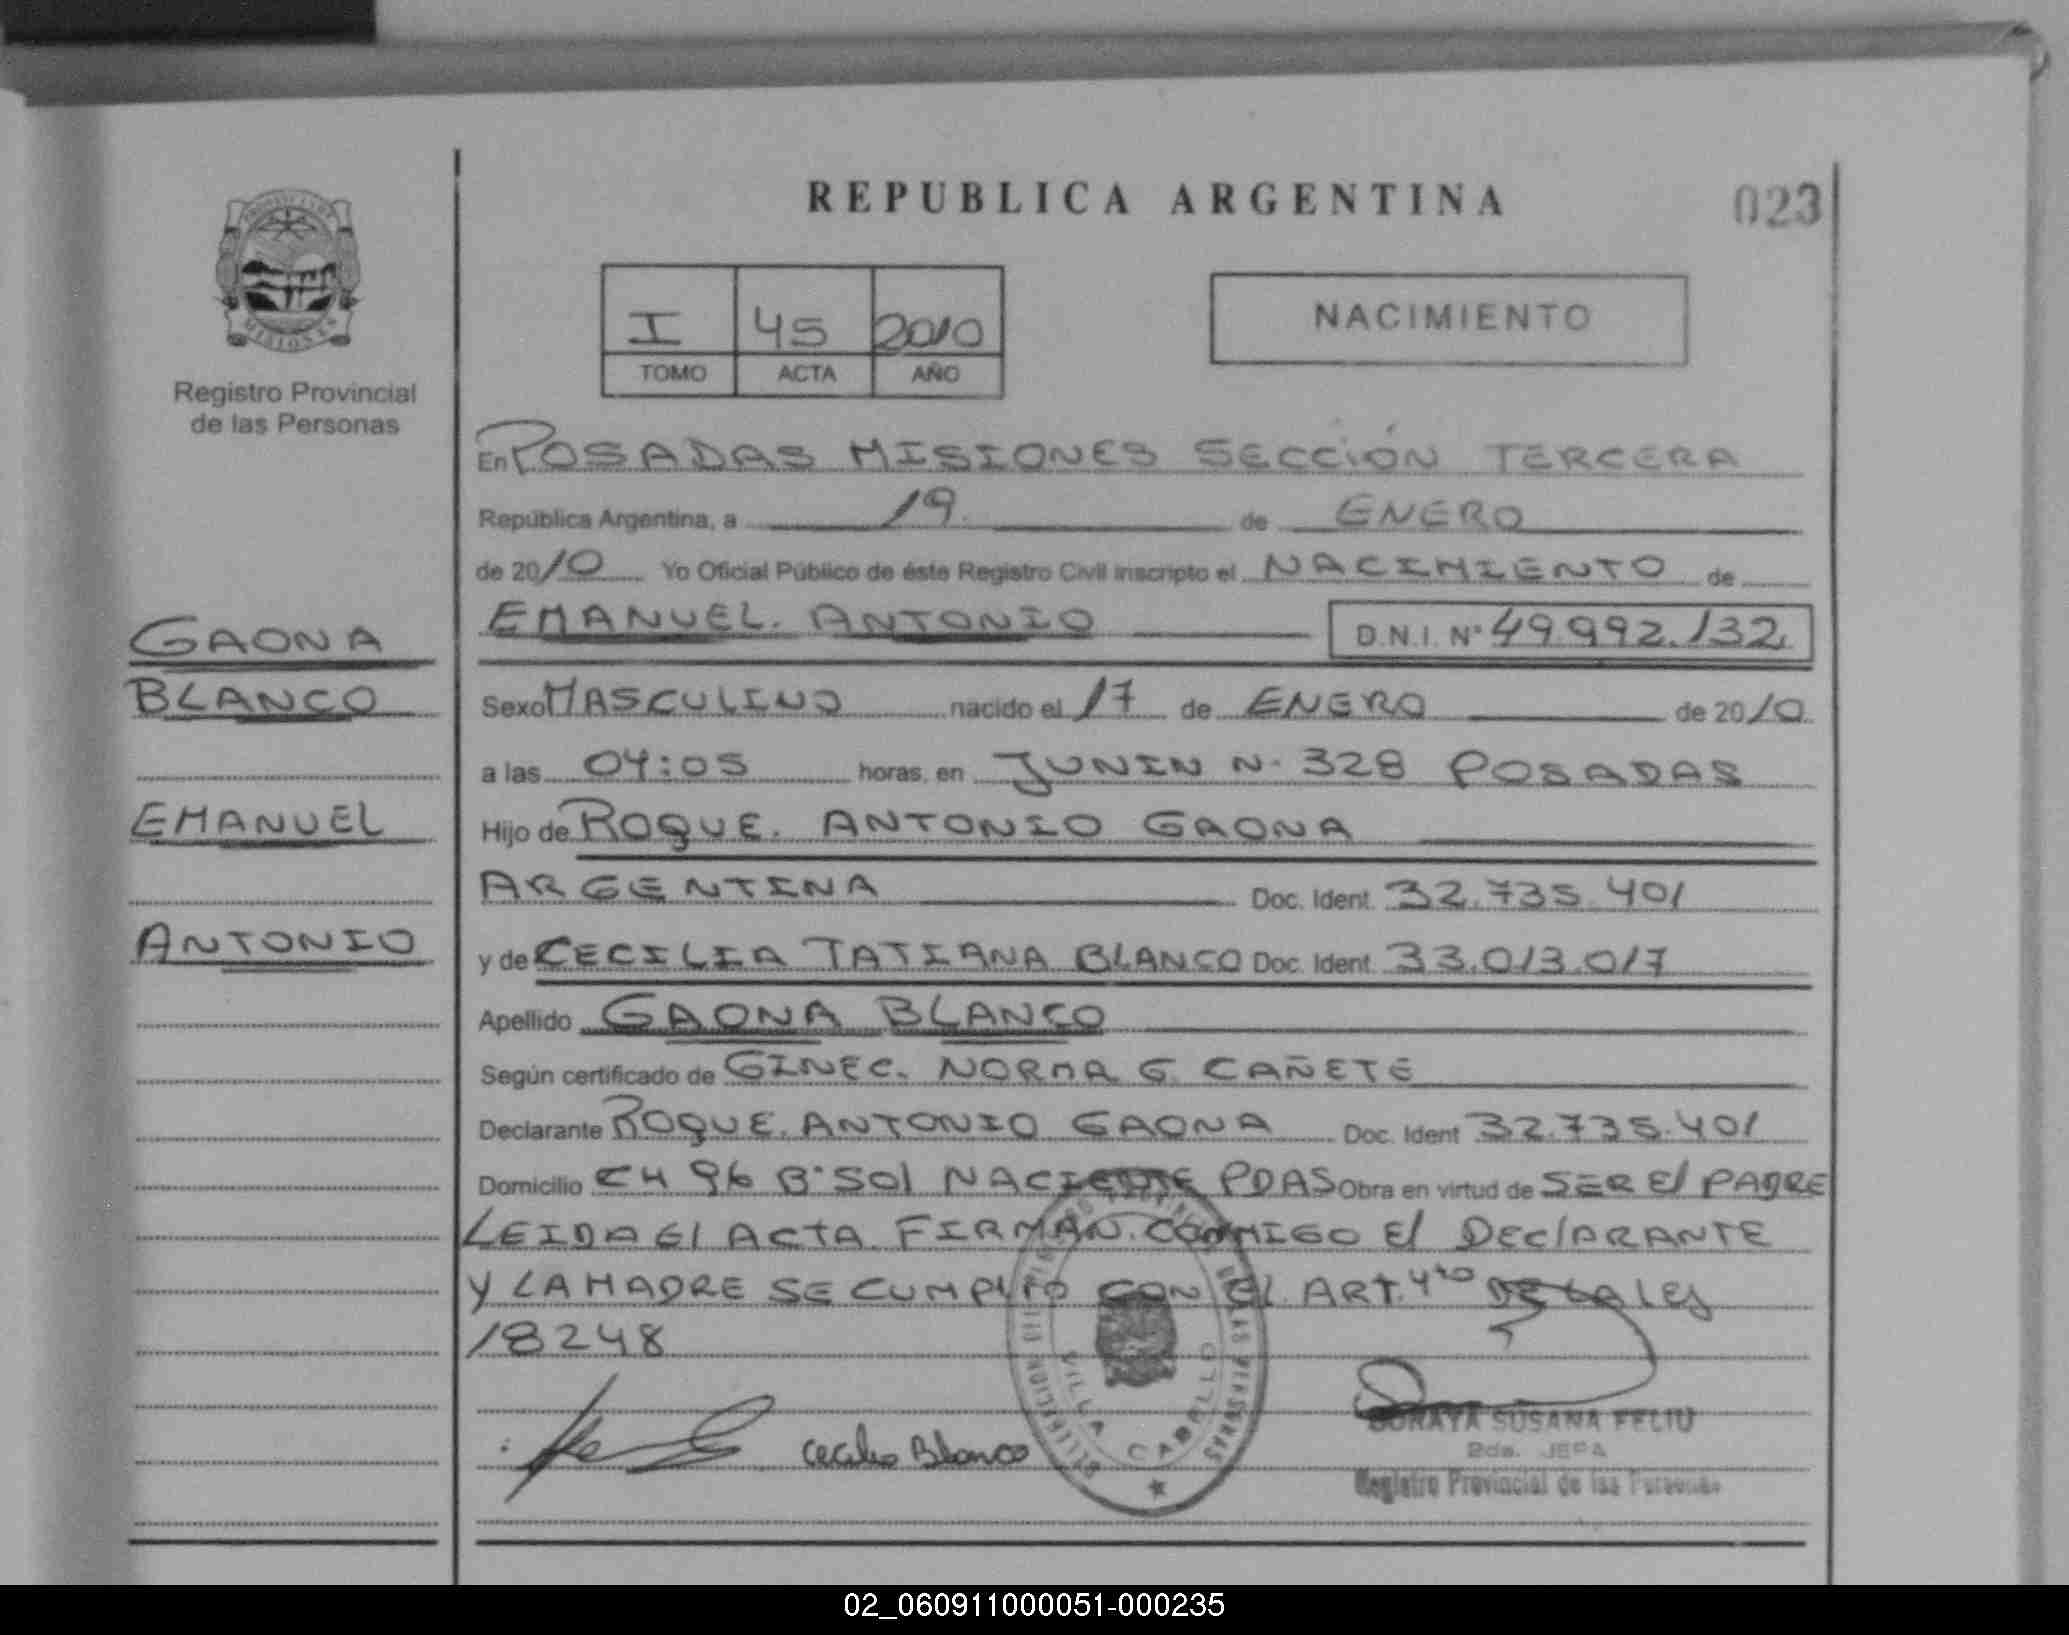 REPUBLICA ARGENTINA
023
PROVINCIA DE
MISIONES
Registro Provincial
de las Personas
I 45 2010
TOMO ACTA AÑO
NACIMIENTO
En POSADAS MISIONES SECCIÓN TERCERA
República Argentina, a 19 de ENERO
de 2010 Yo Oficial Público de éste Registro Civil inscripto el NACIMIENTO de
EMANUEL ANTONIO D.N.I. Nº 49.992.132
GAONA
BLANCO
EMANUEL
ANTONIO
Sexo MASCULINO nacido el 17 de ENERO de 2010
a las 04:05 horas, en JUNIN N. 328 POSADAS
Hijo de ROQUE. ANTONIO GAONA
ARGENTINA Doc. Ident. 32.735.401
y de CECILIA TATIANA BLANCO Doc. Ident. 33.013.017
Apellido GAONA BLANCO
Según certificado de GINEC. NORMA G. CAÑETE
Declarante ROQUE. ANTONIO GAONA Doc. Ident 32.735.401
Domicilio CH 96 Bº SOl NACIENTE PDAS Obra en virtud de SER El PADRE
LEIDA El ACTA FIRMAN CONMIGO El DEClARANTE
Y LA MADRE SE CUMPLIO CON EL ART. 4to DE LA LEY
18248
Cecilia Blanco
VILLA CABALLO
DE LAS PERSONAS
SORAYA SUSANA FELIU
2da. JEFA
Registro Provincial de las Personas
02_060911000051-000235